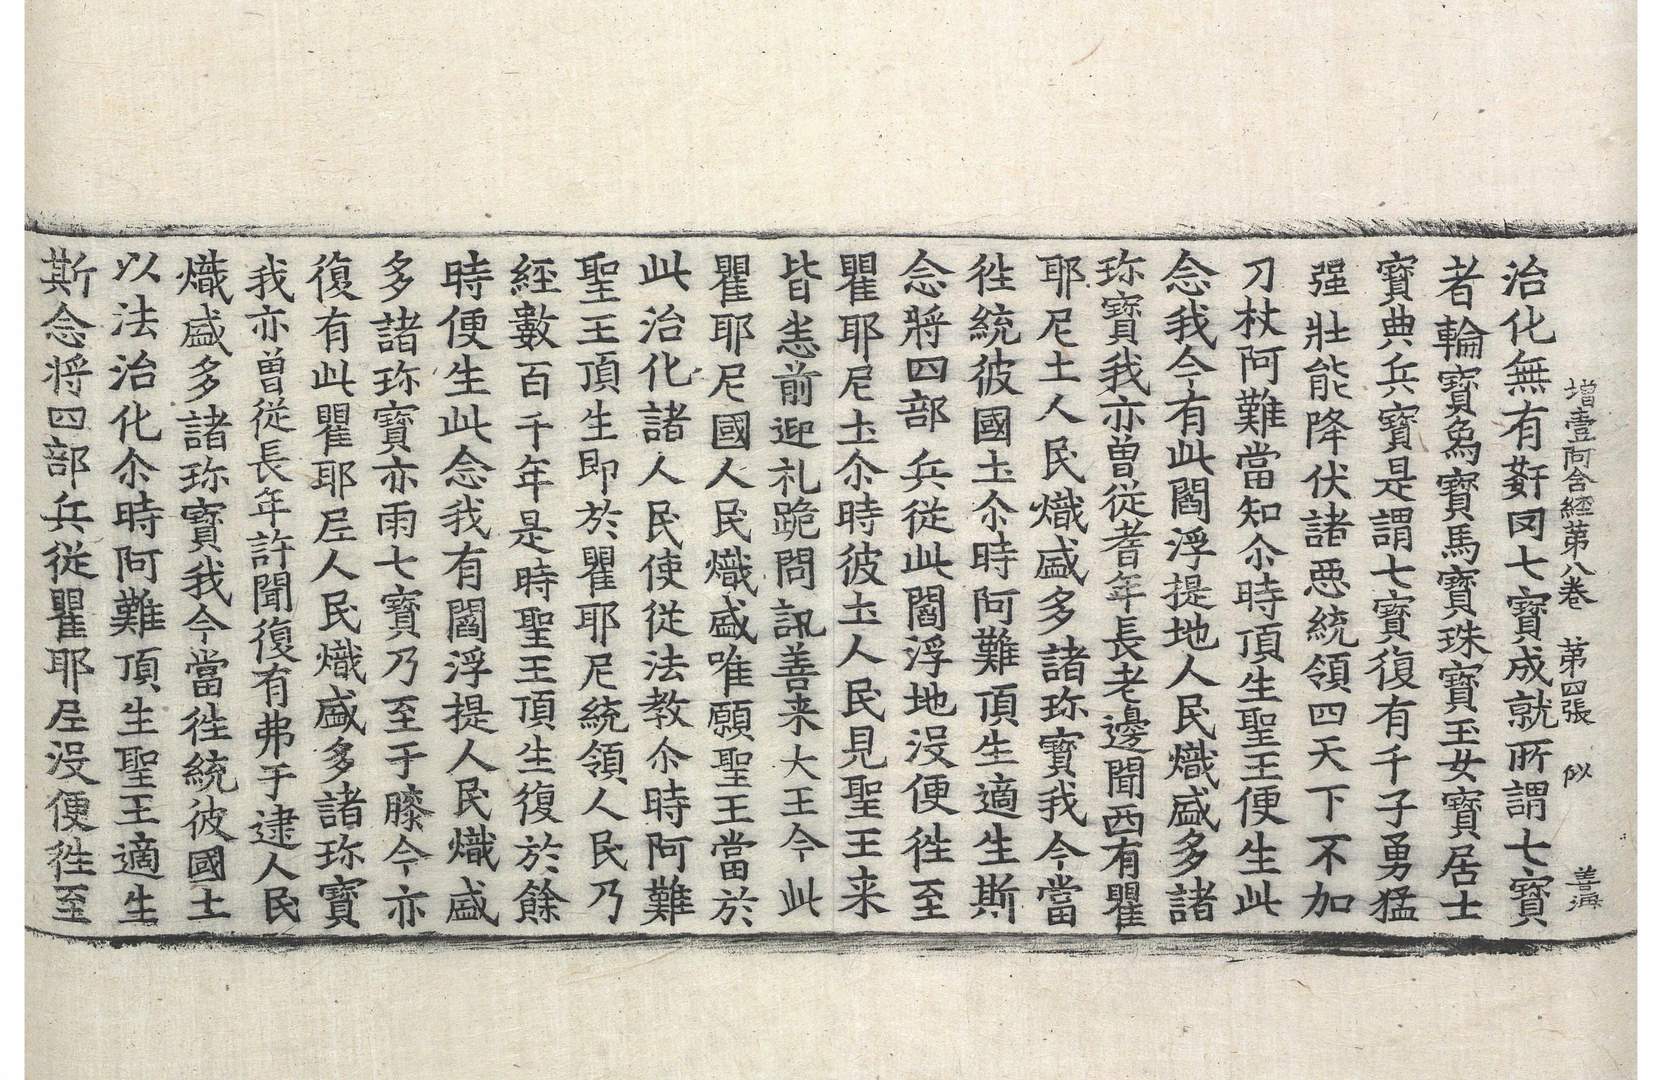 增壹阿含經第八卷　第四張　似　善海
治化無有姧囙七寳成就所謂七寳
者輪寳爲寳馬寳珠寳玉女寳居士
寳典兵寳是謂七寳復有千子勇猛
强壯能降伏諸惡統領四天下不加
刀杖阿難當知尒時頂生聖王便生此
念我今有此閻浮提地人民熾盛多諸
珎寳我亦曽從耆年長老邊聞西有瞿
耶尼土人民熾盛多諸珎寳我今當
徃統彼國圡尒時阿難頂生適生斯
念將四部兵從此閻浮地没便徃至
瞿耶尼圡尒時彼圡人民見聖王来
皆悉前迎礼跪問訊善来大王今此
瞿耶尼國人民熾盛唯願聖王當於
此治化諸人民使從法教尒時阿難
聖王頂生即於瞿耶尼統領人民乃
經數百千年是時聖王頂生復於餘
時便生此念我有閻浮提人民熾盛
多諸珎寳亦雨七寳乃至于膝今亦
復有此瞿耶尼人民熾盛多諸珎寳
我亦曽從長年許聞復有弗于逮人民
熾盛多諸珎寳我今當徃統彼國土
以法治化尒時阿難頂生聖王適生
斯念将四部兵從瞿耶尼没便徃至